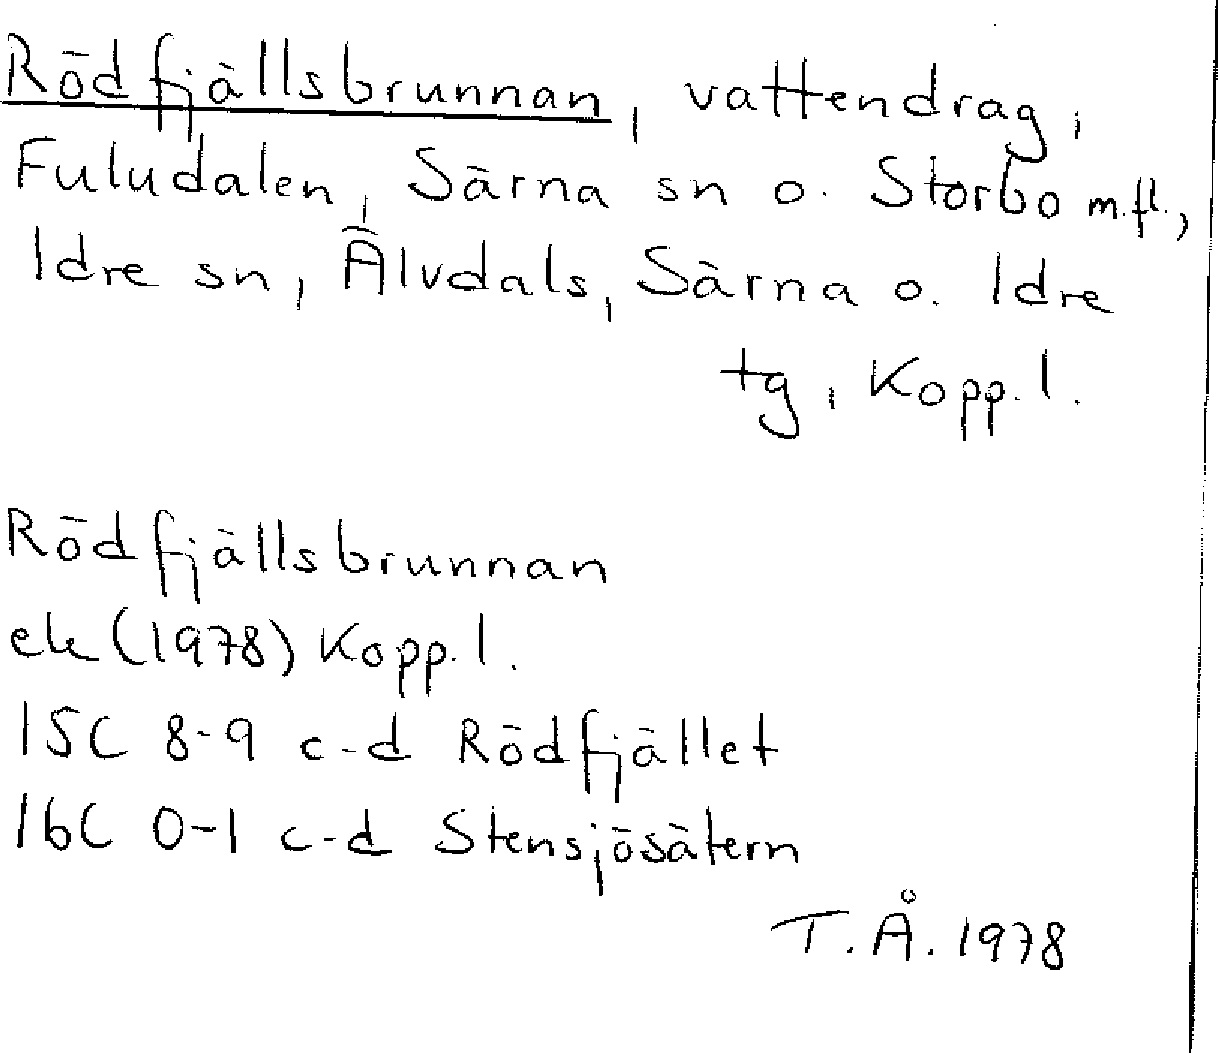 Rödfjällsbrunnan, vattendrag,
Fuludalen, Särna sn o. Storbo m.fl.,
Idre sn, Älvdals, Särna o. Idre
tg, Kopp.l.
Rödfjällsbrunnan
ek (1978) Kopp.l.
15C 8-9 c-d Rödfjället
16C 0-1 c-d Stensjösätern
T.Å. 1978